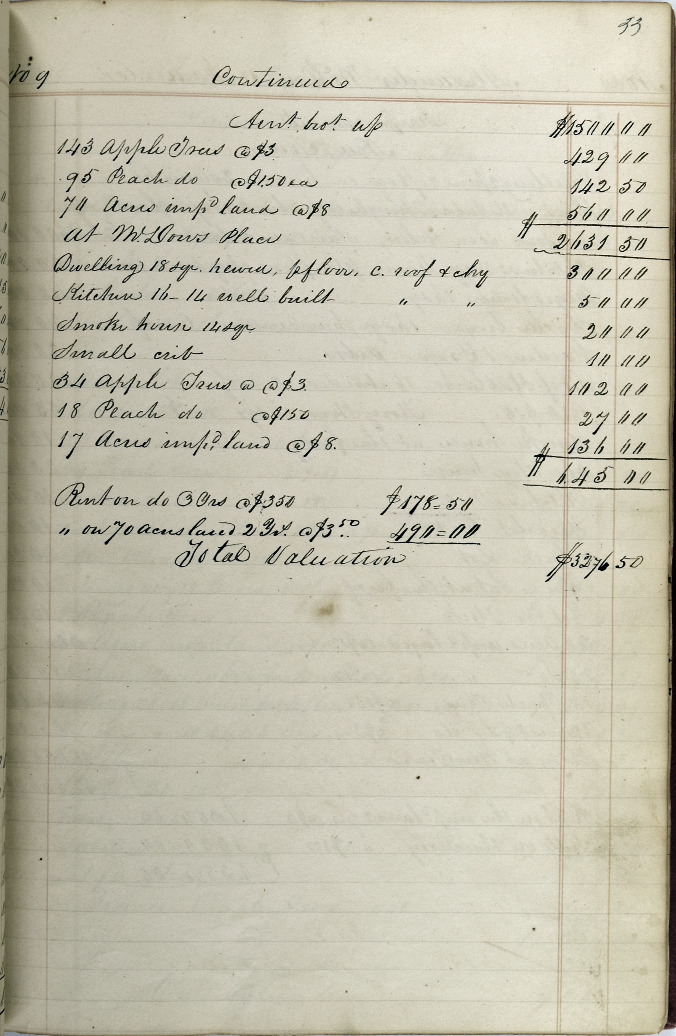 33
No 9 Continued
Amt. brot. up $1500 00
143 Apple Trees @$3 429 00
95 Peach do @$1.50 ea 142 50
70 Acres imp.d land @$8 560 00
At McDows Place $2631 50
Dwelling 18 sqr. hewed, pfloor, c. roof & chy 300 00
Kitchen 16-14 well built " " 50 00
Smoke house 14 sqr 20 00
Small crib 10 00
34 Apple Trees @ @$3. 102 00
18 Peach do @$150 27 00
17 Acres imp.d land @$8. 136 00
$645 00
Rent on do 3 Yrs @$350 $178=50
" on 70 acres land 2 Yr. @$3.50 490=00
Total Valuation $3276 50